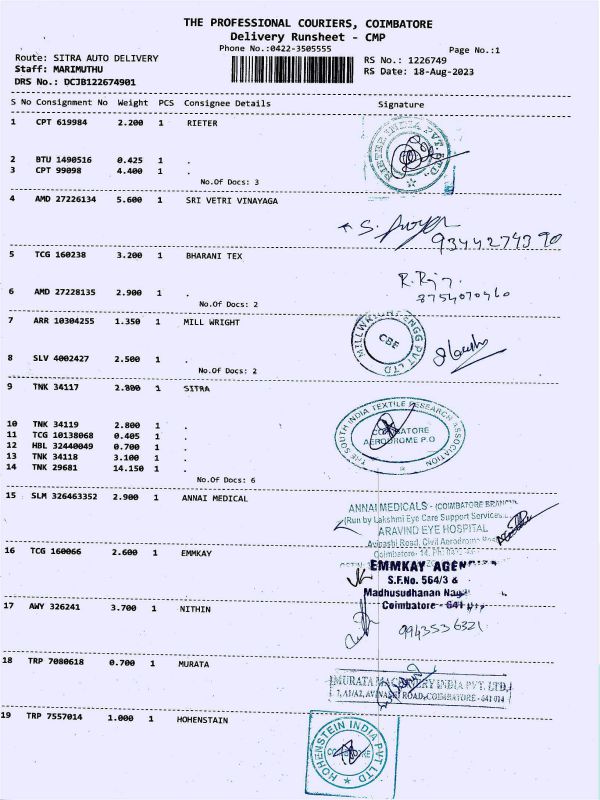 THE PROFESSIONAL COURIERS, COIMBATORE
Delivery Runsheet - CMP
Phone No.:0422-3505555
Page No.:1
Route: SITRA AUTO DELIVERY
RS No.: 1226749
Staff: MARIMUTHU
RS Date: 18-Aug-2023
DRS No.: DCJB122674901
S No Consignment No Weight PCS Consignee Details Signature
1 CPT 619984 2.200 1 RIETER
2 BTU 1490516 0.425 1 .
3 CPT 99098 4.400 1 .
No.Of Docs: 3
4 AMD 27226134 5.600 1 SRI VETRI VINAYAGA
9344274390
5 TCG 160238 3.200 1 BHARANI TEX
R. Raj
8754070460
6 AMD 27228135 2.900 1 .
No.Of Docs: 2
7 ARR 10304255 1.350 1 MILL WRIGHT
MILLWRIGHT ENGG PVT LTD
CBE
8 SLV 4002427 2.500 1 .
No.Of Docs: 2
9 TNK 34117 2.800 1 SITRA
THE SOUTH INDIA TEXTILE RESEARCH ASSOCIATION
COIMBATORE
AERODROME P.O
10 TNK 34119 2.800 1 .
11 TCG 10138068 0.405 1 .
12 HBL 32440049 0.700 1 .
13 TNK 34118 3.100 1 .
14 TNK 29681 14.150 1 .
No.Of Docs: 6
15 SLM 326463352 2.900 1 ANNAI MEDICAL
ANNAI MEDICALS - (COIMBATORE BRANCH)
(Run by Lakshmi Eye Care Support Services
ARAVIND EYE HOSPITAL
Avinashi Road, Civil Aerodrome
Coimbatore- 14.
16 TCG 160066 2.600 1 EMMKAY
EMMKAY AGEN
S.F.No. 564/3 &
Madhusudhanan Nagar
Coimbatore - 641
17 AWY 326241 3.700 1 NITHIN
9943536321
18 TRP 7080618 0.700 1 MURATA
MURATA MACHINERY INDIA PVT. LTD.
7, A1/A2, AVINASHI ROAD, COIMBATORE - 641 014
19 TRP 7557014 1.000 1 HOHENSTAIN
HOHENSTEIN INDIA PVT LTD